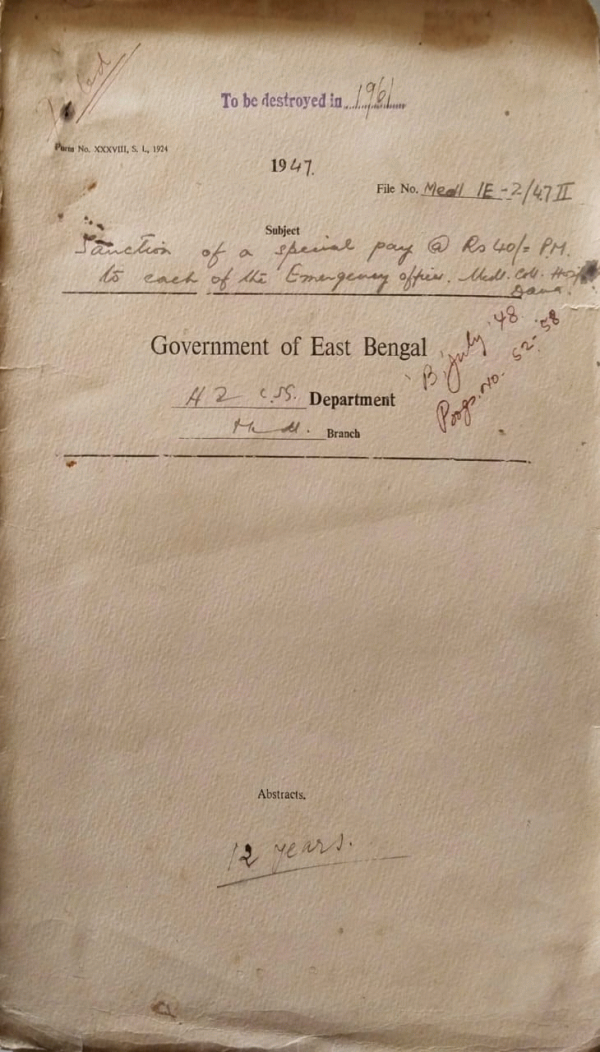 To be destroyed in 1961
Form No. XXXVIII, S. I., 1924
1947.
File No. Medl 1E-2/47 II
Subject
Sanction of a special pay @ Rs 40/= P.M.
to each of the Emergency officer. Medl. Coll. Hosp
Dacca.
Government of East Bengal
Department
Medl. Branch
B, July '48
Progs. No. 52-58
Abstracts.
12 years.